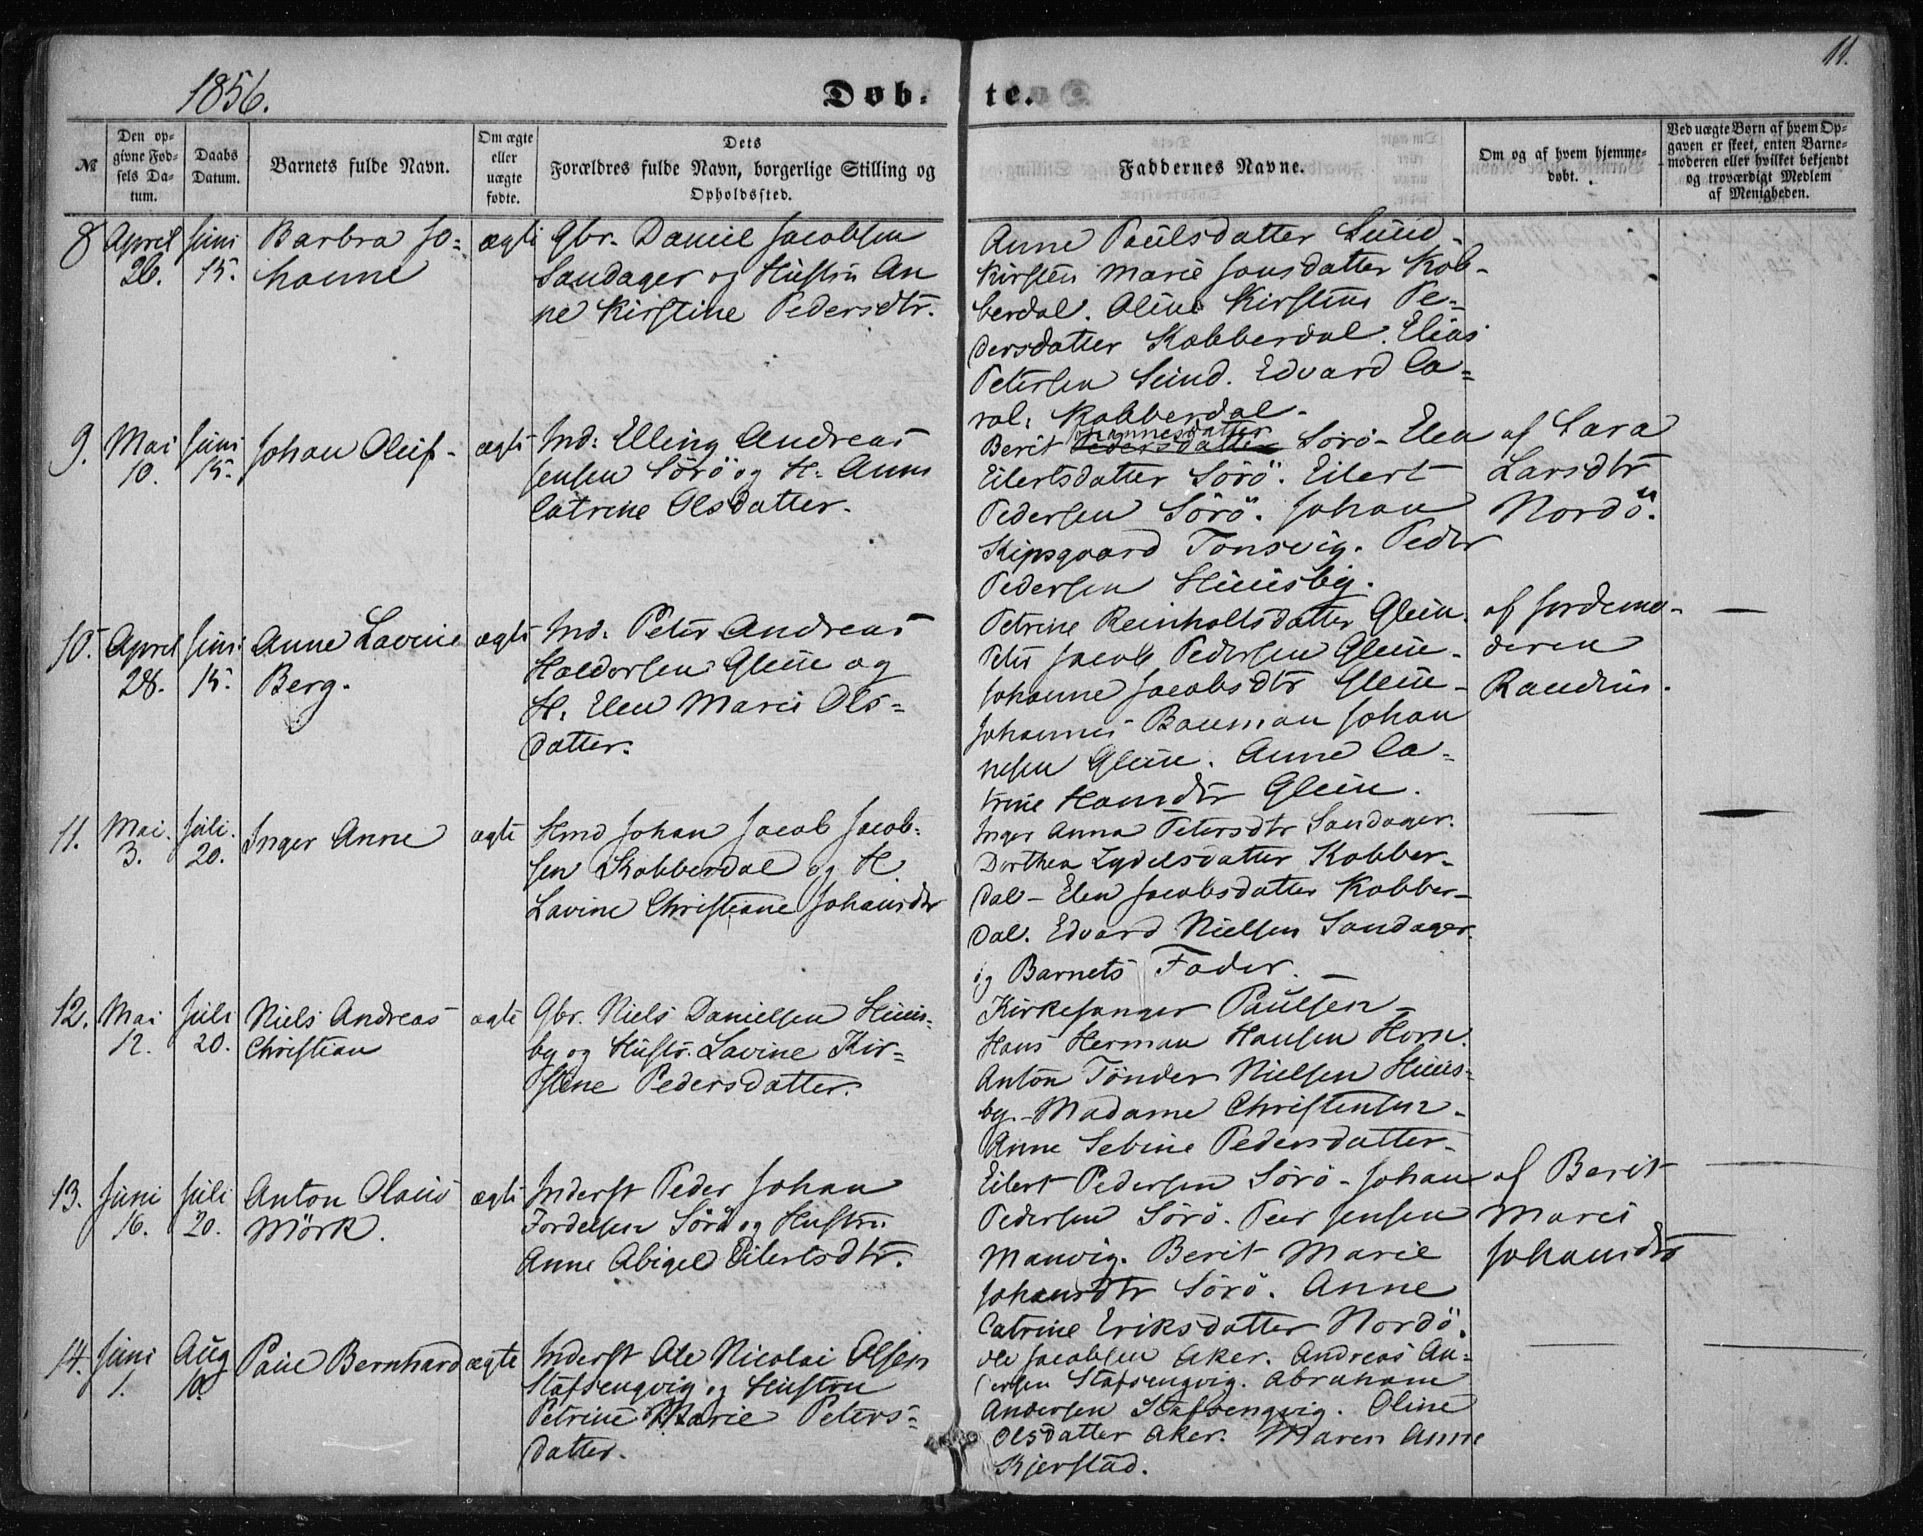 1856.
Døb-
te.
11.
№
Den op-
givne Fød-
sels Da-
tum.
Daabs
Datum.
Barnets fulde Navn.
Om ægte
eller
uægte
fødte.
Dets
Forældres fulde Navn, borgerlige Stilling og
Opholdssted.
Faddernes Navne.
Om og af hvem hjemme-
døbt.
Ved uægte Børn af hvem Op-
gaven er skeet, enten Barne-
moderen eller hvilket bekjendt
og troværdigt Medlem
af Menigheden.
8
April
26.
Juni
15.
Barbra Jo-
hanne
ægte
Gbr. Daniel Jacobsen
Sandager og Hustru An
ne Kirstine Pedersdtr.
Anne Paulsdatter Sund-
Kirsten Marie Jonsdatter Kob-
berdal. Oline Kirstine Pe-
dersdatter Kobberdal. Elias
Petersen Sund. Edvard Ca-
rol: Kobberdal-
9.
Mai
10.
Juni
15.
Johan Oluf-
ægte
Ind: Elling Andreas
Jensen Sörö og H. Anne
Catrine Olsdatter.
Johannesdatter
Berit Pedersdatter Sörö- Elen
Eilertsdatter Sörö. Eilert
Pedersen Sörö. Johan
Kipsgaard Tonsvig. Peder
Pedersen Huusby.
af Sara
Larsdtr
Nordö.
10.
April
28.
Juni
15.
Anne Lovine
Berg.
ægte
Ind. Peter Andreas
Haldorsen Glein og
H. Elen Marie Ols-
datter.
Petrine Reinholtsdatter Glein.
Peter Jacob Pedersen Glein-
Johanne Jacobsdtr Glein-
Johannes Bauman Johan
nesen Glein. Anne Ca-
trine Hansdtr Glein.
af Jordemo-
deren
Randine.
11.
Mai.
3.
Juli.
20.
Inger Anne
ægte
Hmd Johan Jacob Jacob-
sen Kobberdal og H.
Lavine Christiane Johansdtr
Inger Anna Petersdtr Sandager.
Dorthea Zydelsdatter Kobber-
dal- Elen Jacobsdatter Kobber-
dal. Edvard Nielsen Sandager.
og Barnets Fader.
12.
Mai
12.
Juli
20.
Niels Andreas
Christian
ægte
Gbr. Niels Danielsen Huus-
by og Hustr. Lavine Kir-
stine Pedersdatter.
Kirkesanger Paulsen-
Hans Herman Hansen Horn.
Anton Tönder Nielsen Huus-
by. Madame Christensen-
Anne Sebine Pedersdatter-
13.
Juni
16.
Juli
20.
Anton Olaus
Mörk.
ægte
Inderst Peder Johan
Fordelsen Sörö og Hustru
Anne Abigel Eilertsdtr.
Eilert Pedersen Sörö- Johan
Pedersen Sörö. Peer Jensen
Manvig. Berit Marie
Johansdtr Sörö. Anne
Catrine Eriksdatter Nordö.
af Berit
Marie
Johansdtr
14.
Juni
1.
Aug
10.
Paul Bernhard
ægte
Inderst Ole Nicolai Olsen
Stafsengvig og Hustru
Petrine Marie Peters-
datter.
Ole Jacobsen Aker. Andreas An-
dersen Stafsengvig. Abraham
Andersen Stafsengvig. Oline
Olsdatter Aker. Maren Anne
Bjerstad.